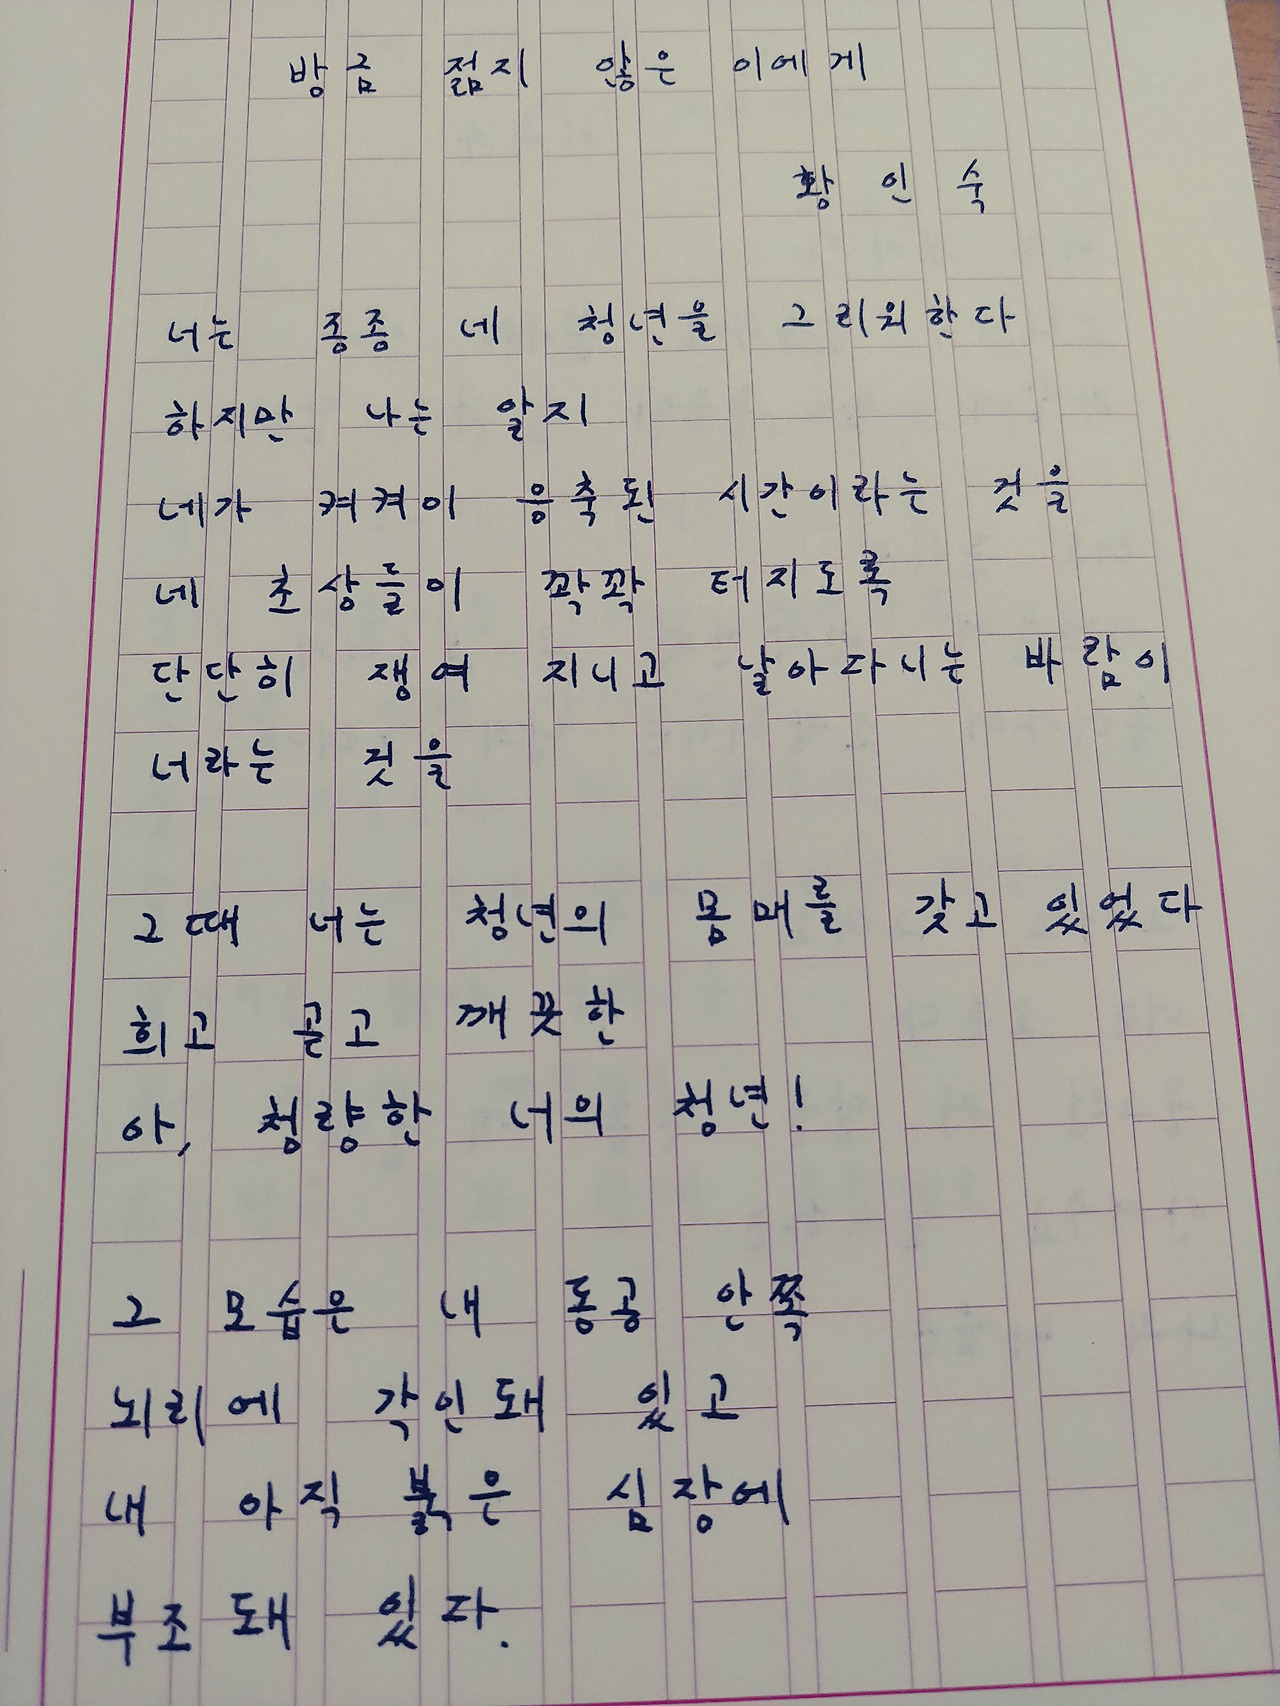 방금 젊지 않은 이에게
황인숙
너는 종종 네 청년을 그리워한다
하지만 나는 알지
네가 켜켜이 응축된 시간이라는 것을
네 초상들이 꽉꽉 터지도록
단단히 쟁여 지니고 날아다니는 바람이
너라는 것을
그때 너는 청년의 몸매를 갖고 있었다
희고 곧고 깨끗한
아, 청량한 너의 청년!
그 모습은 내 동공 안쪽
뇌리에 각인돼 있고
내 아직 붉은 심장에
부조돼 있다.